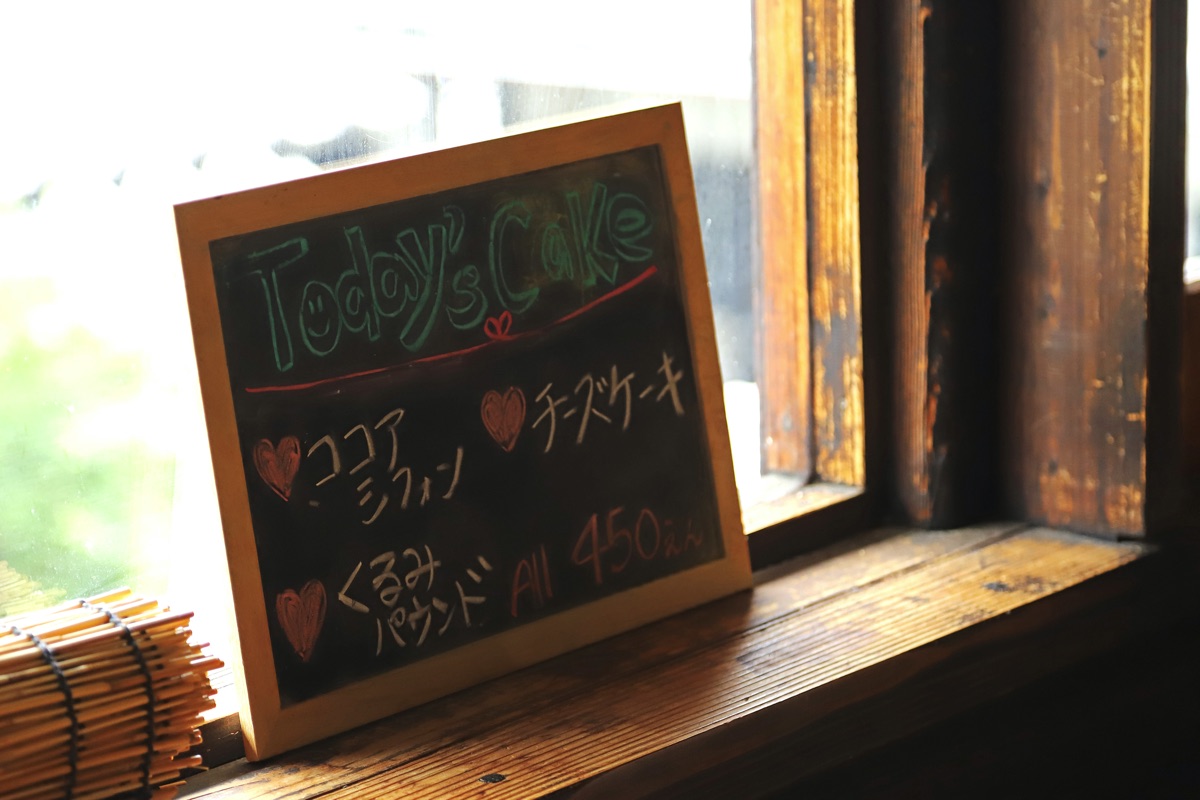 Today's Cake
ココア
シフォン
チーズケーキ
くるみ
パウンド
All 450えん